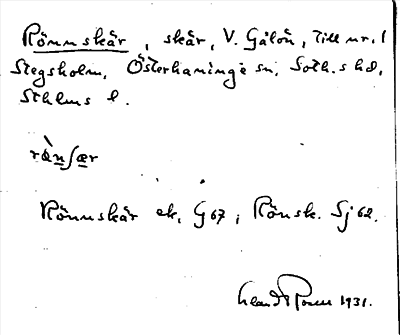 Rönnskär, skär, V. Gålön, till nr. 1
Stegsholm, Österhaninge sn, Soth.s hd,
Sthlms l.
Rönnskär ek. G 67; Rönsk. Sj 62.
1931.